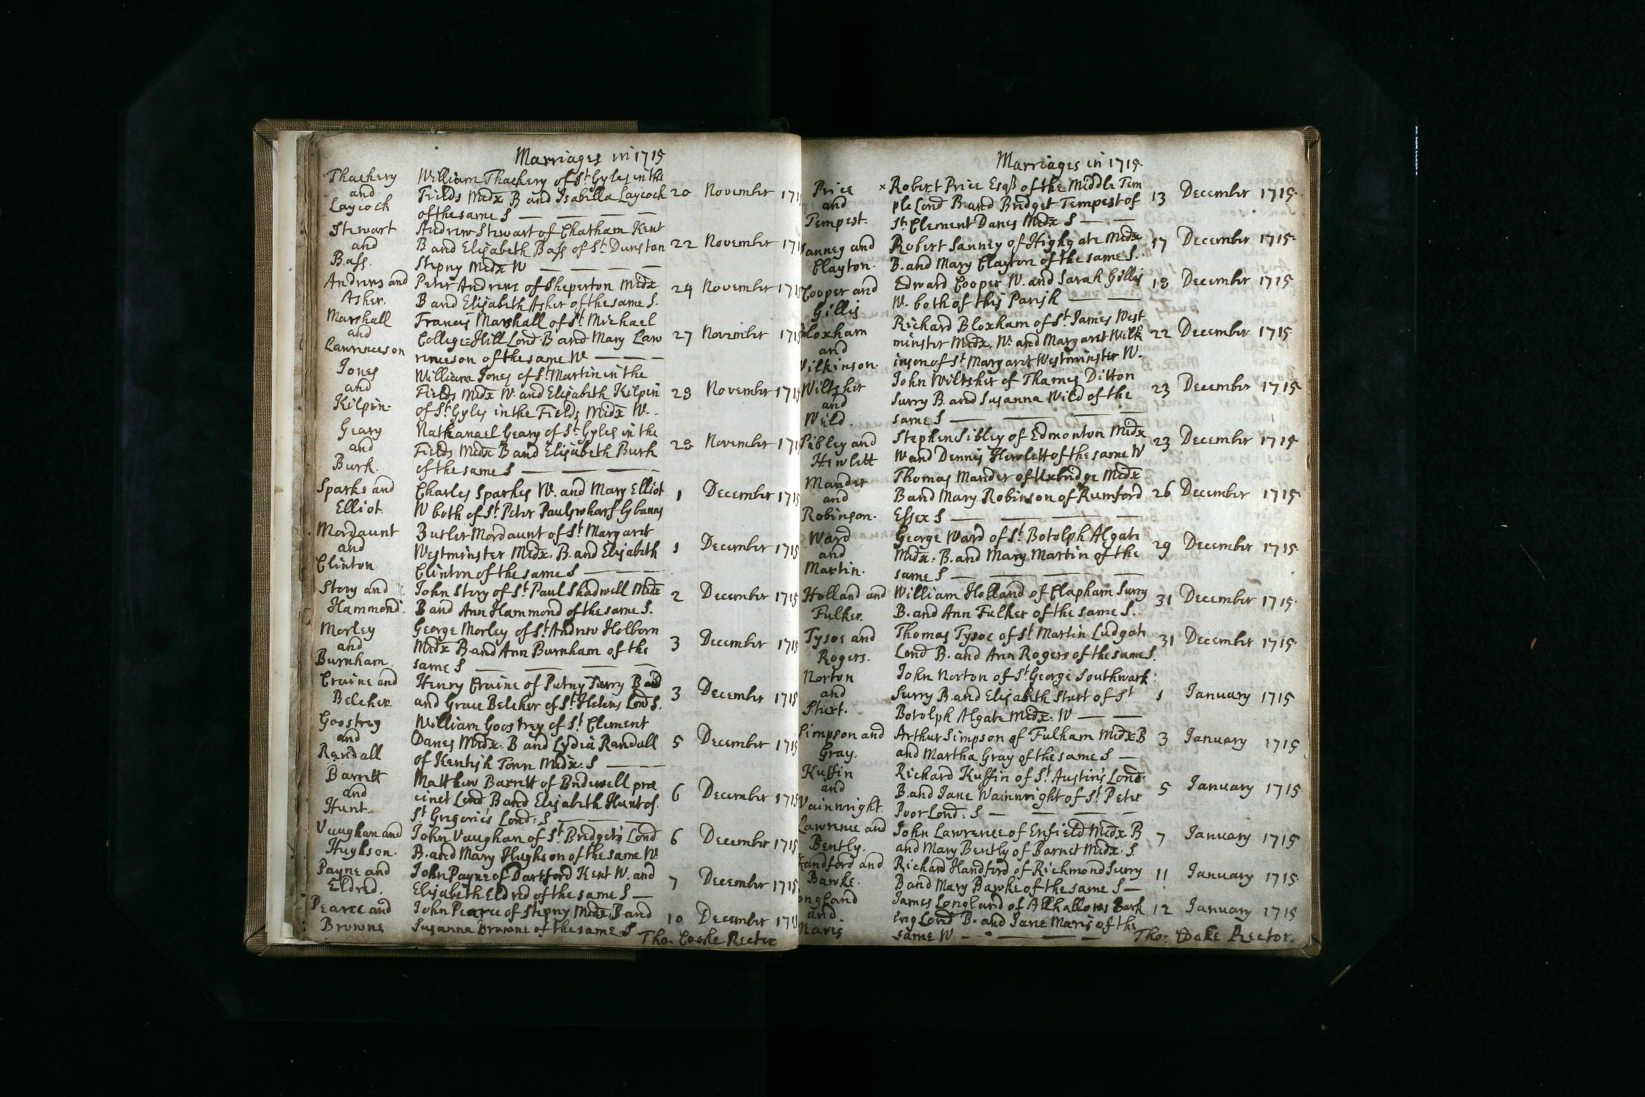 Marriages in 1715
Thackery
and
Laycock
William Thackery of St. Gyles in the
Fields Midx B and Isabilla Laycock
of the same S
20 November 171
Stewart
and
Bass.
Andrew Stewart of Chatham Kent
B and Elizabeth Bass of St. Dunston
Stepny Midx W
22 November 171
Andrews and
Asher.
Peter Andrews of Sheperton Midx
B and Elizabeth Asher of the same S.
24 November 171
Marshall
and
Lawrenceson
Francis Marshall of St. Michael
College-Hill Lond B and Mary Law
renceson of the same W
27 November 171
Jones
and
Kilpin
William Jones of St. Martin in the
Fields Midx W. and Elizabeth Kilpin
of St. Gyles in the Fields Midx W.
28 November 171
Geary
and
Burk.
Nathanael Geary of St. Gyles in the
Fields Midx B and Elizabeth Burk
of the same S
28 November 171
Sparks and
Elliot
Charles Sparkes W. and Mary Elliot
W both of St. Peter Paulswharf
1 December 171
Mordaunt
and
Clinton
Butler Mordaunt of St. Margaret
Westminster Midx. B. and Elizabeth
Clinton of the same S
1 December 1715
Story and
Hammond.
John Story of St. Paul Shadwell Midx
B and Ann Hammond of the same S.
2 December 1715
Morley
and
Burnham
George Morley of St. Andrew Holborn
Midx B and Ann Burnham of the
same S
3 December 171
Craine and
Belcher
Henry Craine of Putny Surry B and
and Grace Belcher of St. Helens Lond S.
3 December 1715
Goostrey
and
Randall
William Goostrey of St. Clement
Danes Midx. B and Lydia Randall
of Kentish Town Midx: S
5 December 1715
Barrett
and
Hunt
Matthew Barrett of Bridewell pre
cinct Lond B and Elizabeth Hunt of
St Gregories Lond: S
6 December 1715
Vaughan and
Hughson.
John Vaughan of St. Bridgets Lond
B. and Mary Hughson of the same W
6 December 1715
Payne and
Eldred.
John Payne of Dartford Kent W. and
Elizabeth Eldred of the same S
7 December 1715
Pearce and
Browne
John Pearce of Stepny Midx B and
Susanna Browne of the same S
10 December 171
Tho: Cooke Rector
Marriages in 1715.
Price
and
Tempest.
× Robert Price Esqr of the Middle Tem
ple Lond B and Bridget Tempest of
St. Clement Danes Midx S
13 December 1715.
anney and
Clayton.
Robert Sanney of Highgate Midx
B. and Mary Clayton of the same S.
17 December 1715
Cooper and
Gillis
Edward Cooper W. and Sarah Gillis
W. both of this Parish
18 December 1715
loxham
and
ilkinson.
Richard Bloxham of St. James West
minster Midx. W. and Margaret Wilk
inson of St. Margaret Westminster W.
22 December 1715
Wiltshir
and
Wild.
John Wiltshir of Thames Ditton
Surry B. and Susanna Wild of the
same S
23 December 1715
Sibley and
Hewlett
Stephen Sibley of Edmonton Midx
W and Dennis Hewlett of the same W
23 December 1715
Mander
and
Robinson.
Thomas Mander of Uxbridge Midx
B and Mary Robinson of Rumford
Essex S
26 December 1715
Ward
and
Martin.
George Ward of St. Botolph Algate
Midx. B. and Mary Martin of the
same S
29 December 1715
Holland and
Fulker.
William Holland of Clapham Surry
B. and Ann Fulker of the same S.
31 December 1715.
Tysoe and
Rogers.
Thomas Tysoe of St. Martin Ludgate
Lond B. and Ann Rogers of the same S.
31 December 1715
Norton
and
Sturt.
John Norton of St. George Southwark
Surry B and Elizabeth Sturt of St
Botolph Algate Midx. W
1 January 1715
Simpson and
Gray.
Arthur Simpson of Fulham Midx B
and Martha Gray of the same S
3 January 1715
Kuffin
and
Wainwright
Richard Kuffin of St. Austin's Lond
B. and Jane Wainwright of St. Peter
Poor Lond. S
5 January 1715
Lawrence and
Bently.
John Lawrence of Enfield Midx B
and Mary Bently of Barnet Midx. S
7 January 1715
Handford and
Bawke.
Richard Handford of Richmond Surry
B and Mary Bawke of the same S
11 January 1715
ongland
and
Maris
James Longland of Allhallows Bark
ing Lond B. and Jane Maris of the
same W
12 January 1715
Tho: Cooke Rector.